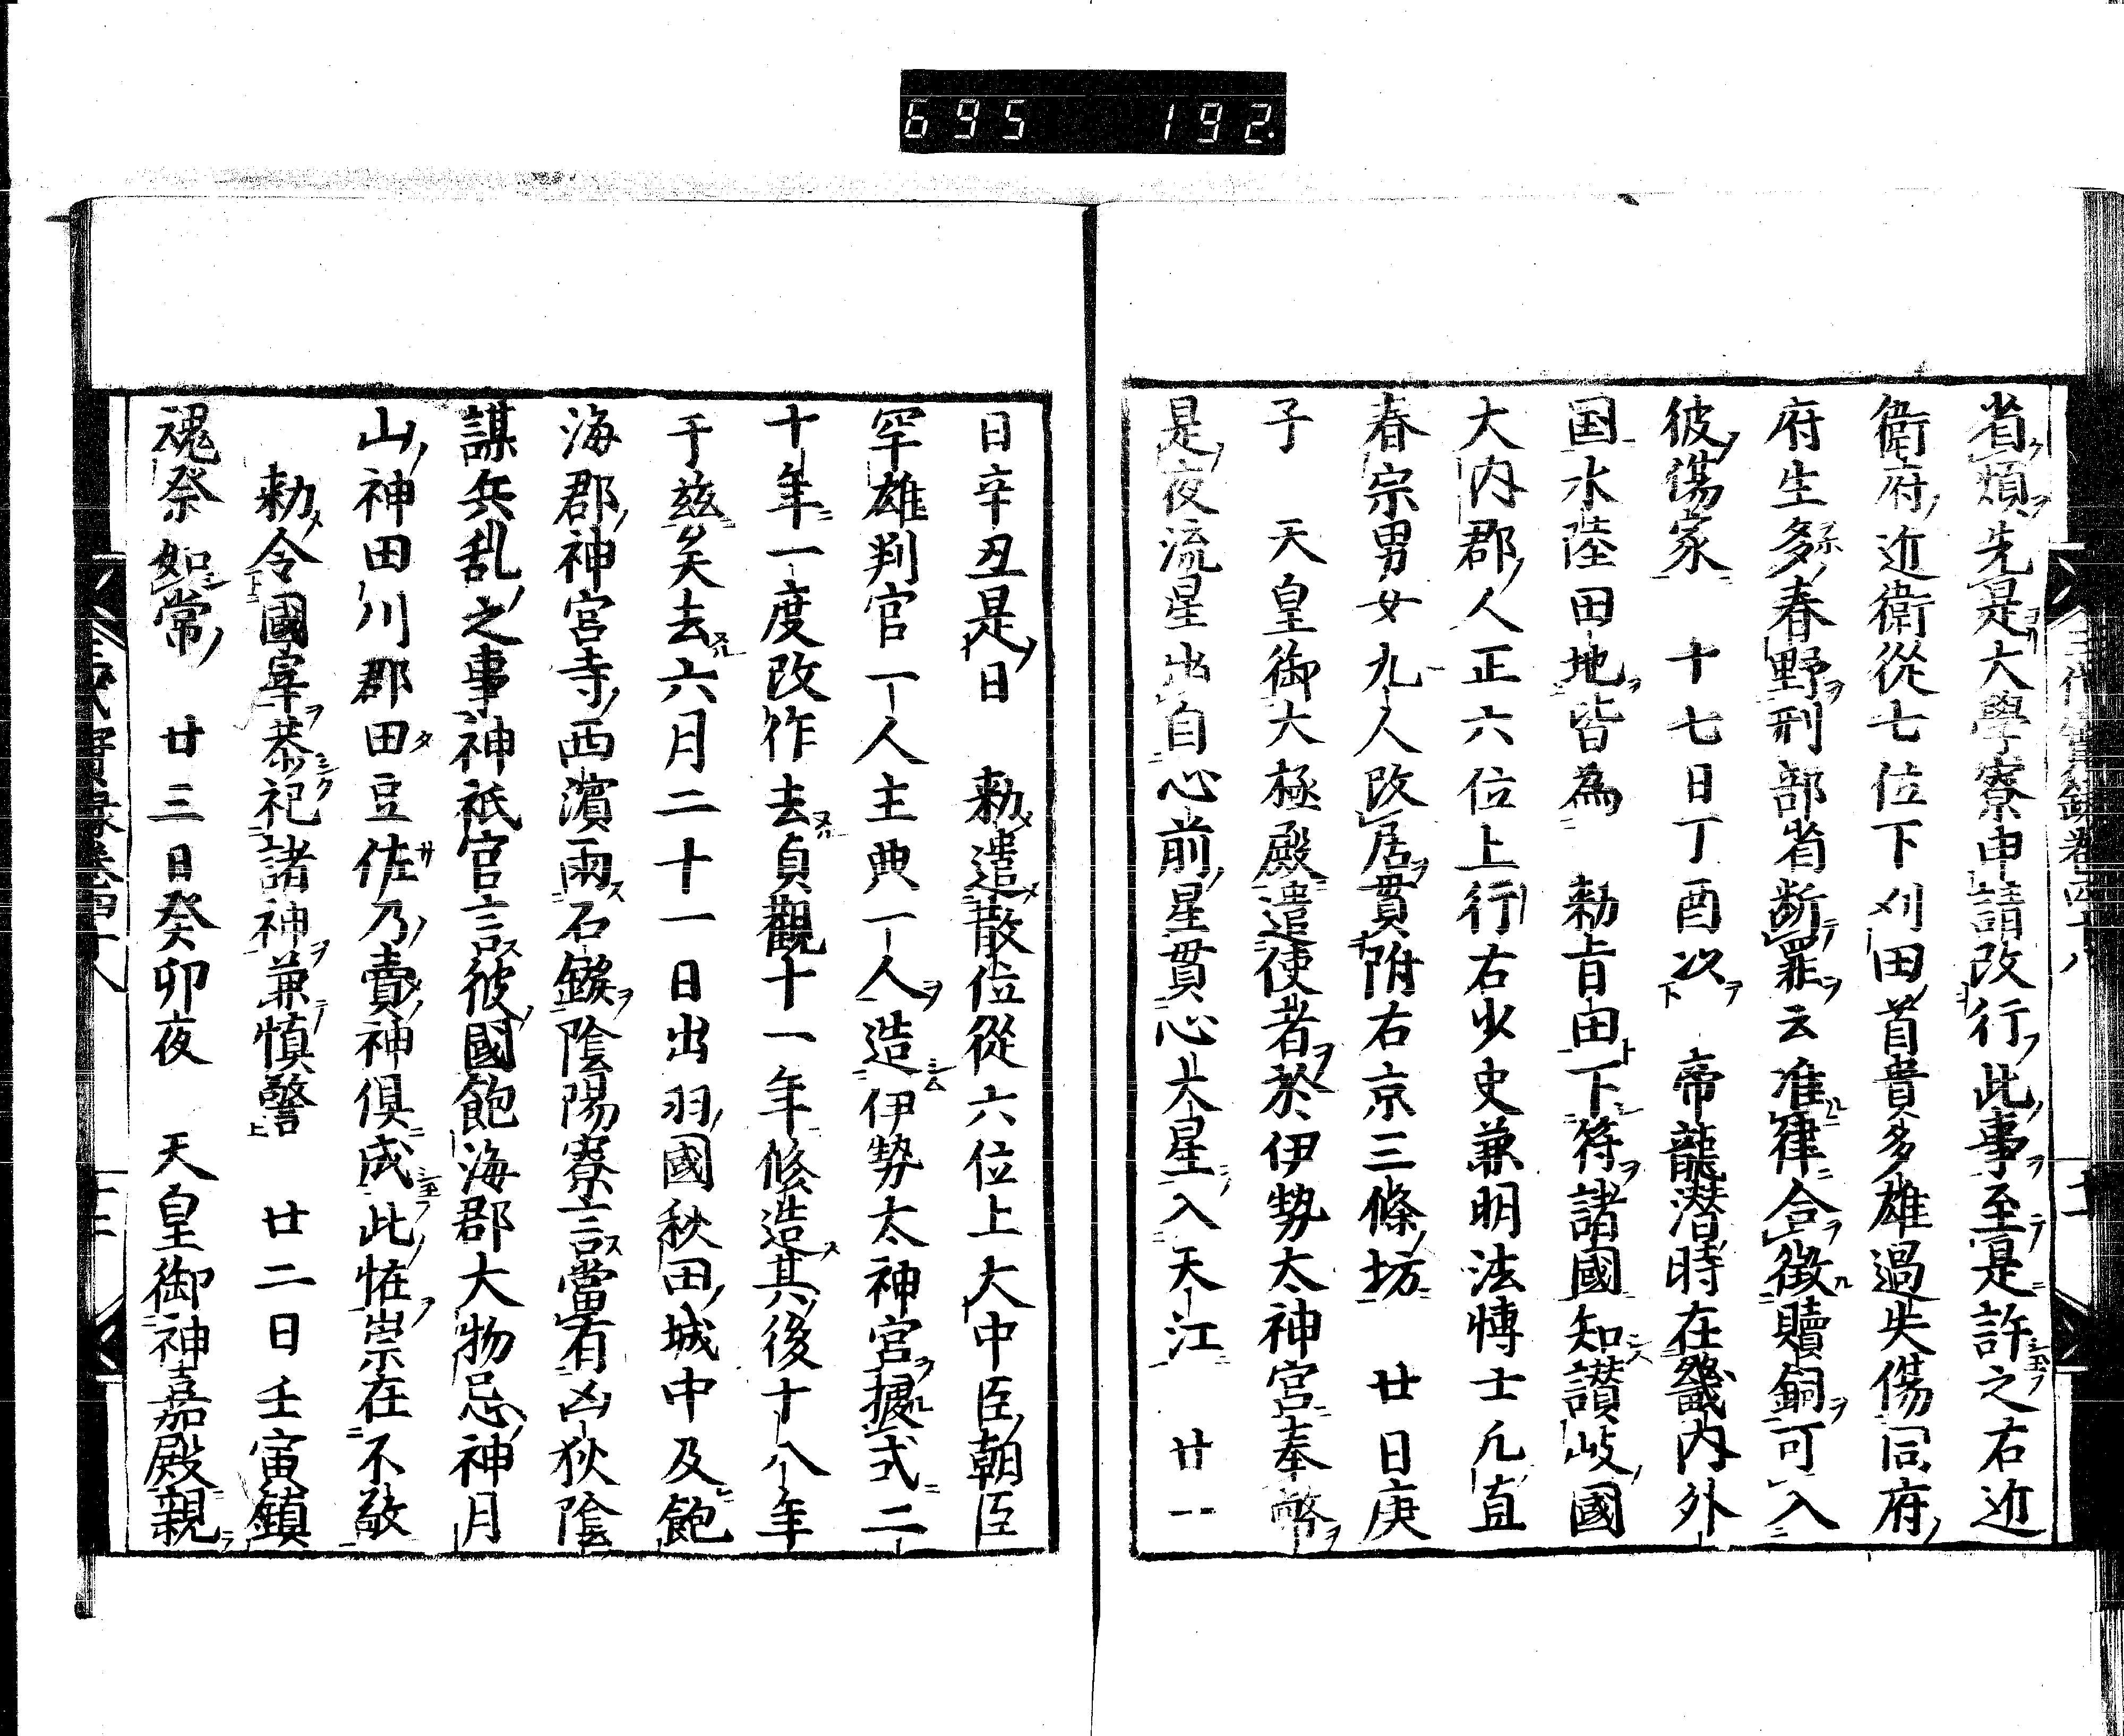 695 192.
省煩先是大學寮申請改行此事至是許之右近
衛府近衛從七位下刈田首貴多雄過失傷同府
府生多春野刑部省断罪云准律合徴贖銅可入
彼傷家 十七日丁酉以 帝龍潜時在畿内外
国水陸田地皆為 勅旨由下符諸國知讃岐國
大内郡人正六位上行右少史兼明法博士凡直
春宗男女九人改居貫附右京三條坊 廿日庚
子 天皇御大極殿遣使者於伊勢太神宮奉幣
是夜流星出自心前星貫心大星入天江 廿一
日辛丑是日 勅遣散位從六位上大中臣朝臣
罕雄判官一人主典一人造伊勢太神宮據式二
十年一度改作去貞觀十一年修造其後十八年
于茲矣去六月二十一日出羽國秋田城中及飽
海郡神宮寺西濱雨石鏃陰陽寮言當有凶狄陰
謀兵乱之事神祇官言彼國飽海郡大物忌神月
山神田川郡田豆佐乃賣神倶成此恠崇在不敬
勅令國宰恭祀諸神兼慎警 廿二日壬寅鎮
魂祭如常 廿三日癸卯夜 天皇御神嘉殿親